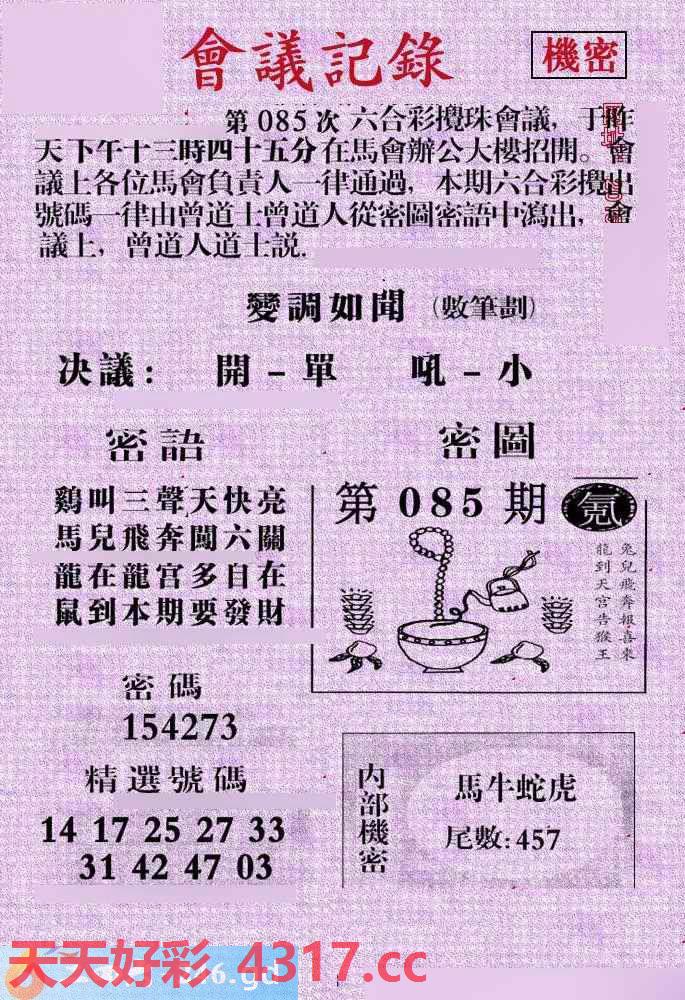 會議記錄
機密
第 085 次 六合彩攪珠會議，于昨
天下午十三時四十五分在馬會辦公大樓招開。會
議上各位馬會負責人一律通過，本期六合彩攪出
號碼一律由曾道士曾道人從密圖密語中瀉出，會
議上，曾道人道士説.
變調如聞（數筆劃）
决議： 開－單 吼－小
密語
鷄叫三聲天快亮
馬兒飛奔闖六關
龍在龍宫多自在
鼠到本期要發財
密圖
第 085 期
兔兒飛奔報喜來
龍到天宫告猴王
密碼
154273
精選號碼
14 17 25 27 33
31 42 47 03
内部機密
馬牛蛇虎
尾數:457
天天好彩 4317.cc